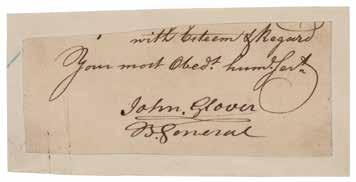 with Esteem & Regard
Your most Obedt. humle. Sert.
John. Glover
B. General